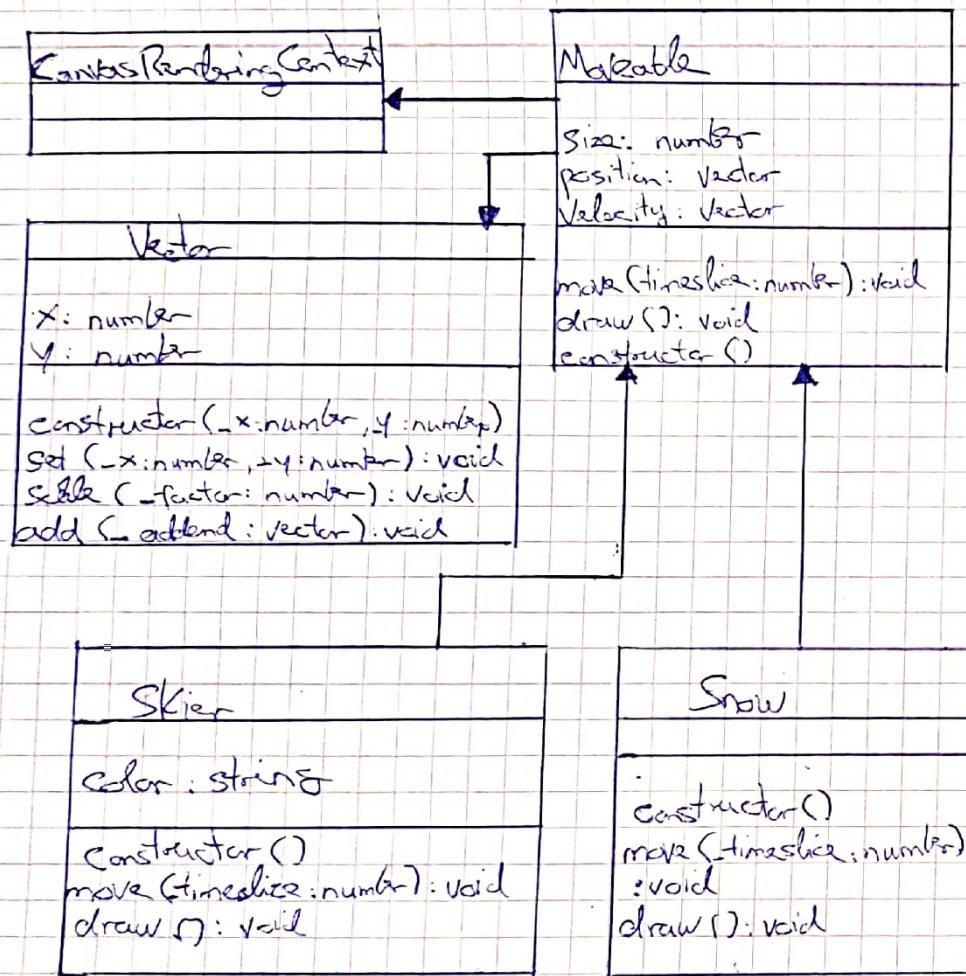 CanvasRenderingContext
Moveable
size: number
position: vector
velocity: vector
move(timeslice: number): void
draw(): void
constructor()
Vector
x: number
y: number
constructor(_x: number, y: number)
set (_x: number, _y: number): void
scale (_factor: number): void
add (_addend: vector): void
Skier
color: string
constructor()
move(timeslice: number): void
draw(): void
Snow
constructor()
move(_timeslice: number)
: void
draw(): void